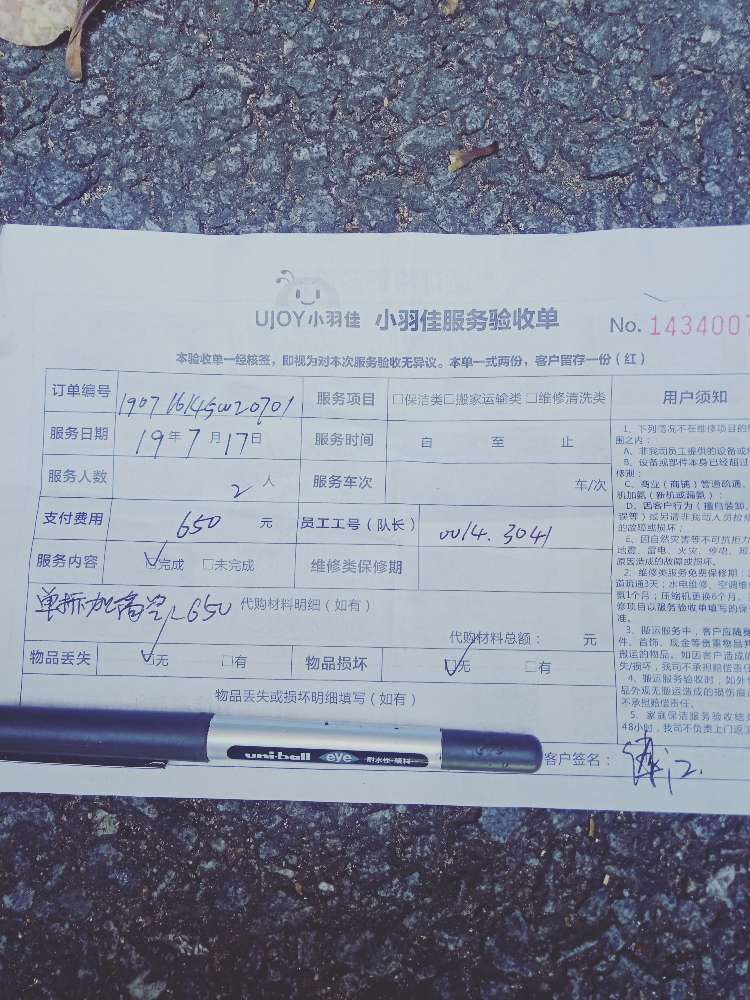 UJOY小羽佳 小羽佳服务验收单 No. 1434007
本验收单一经核签，即视为对本次服务验收无异议。本单一式两份，客户留存一份（红）
订单编号 服务项目 □保洁类□搬家运输类 □维修清洗类
服务日期 19年7月17日 服务时间 自 至 止
服务人数 2人 服务车次 车/次
支付费用 650 元 员工工号（队长） 0014.3041
服务内容 ☑完成 □未完成 维修类保修期
单拆加高空 650 代购材料明细（如有）
代购材料总额： 元
物品丢失 ☑无 □有 物品损坏 ☑无 □有
物品丢失或损坏明细填写（如有）
客户签名：
用户须知
1、下列情况不在维修项目的
围之内：
A、非我司员工提供的设备或
B、设备或部件本身已经超过
修期；
C、商业（商铺）管道疏通、
机加氨（新机或漏氨）；
D、因客户行为（擅自装卸、
误等）或另请非我司人员检修
的故障或损坏；
E、因自然灾害等不可抗拒力
地震、雷电、火灾、停电、
原因造成的故障或损坏。
2、维修类服务免费保修期：
道疏通3天；水电维修、空调维
氨1个月；压缩机更换6个月。
修项目以服务验收单填写的保
准。
3、搬运服务中，客户应随身
件、首饰、现金等贵重物品
搬运的物品。如因客户造成的
失/损坏，我司不承担赔偿责任
4、搬运服务验收时，如外包
品外观无搬运造成的损伤痕
不承担赔偿责任。
5、家庭保洁服务验收结
48小时，我司不负责上门返工
uni-ball eye 耐水性·颜料